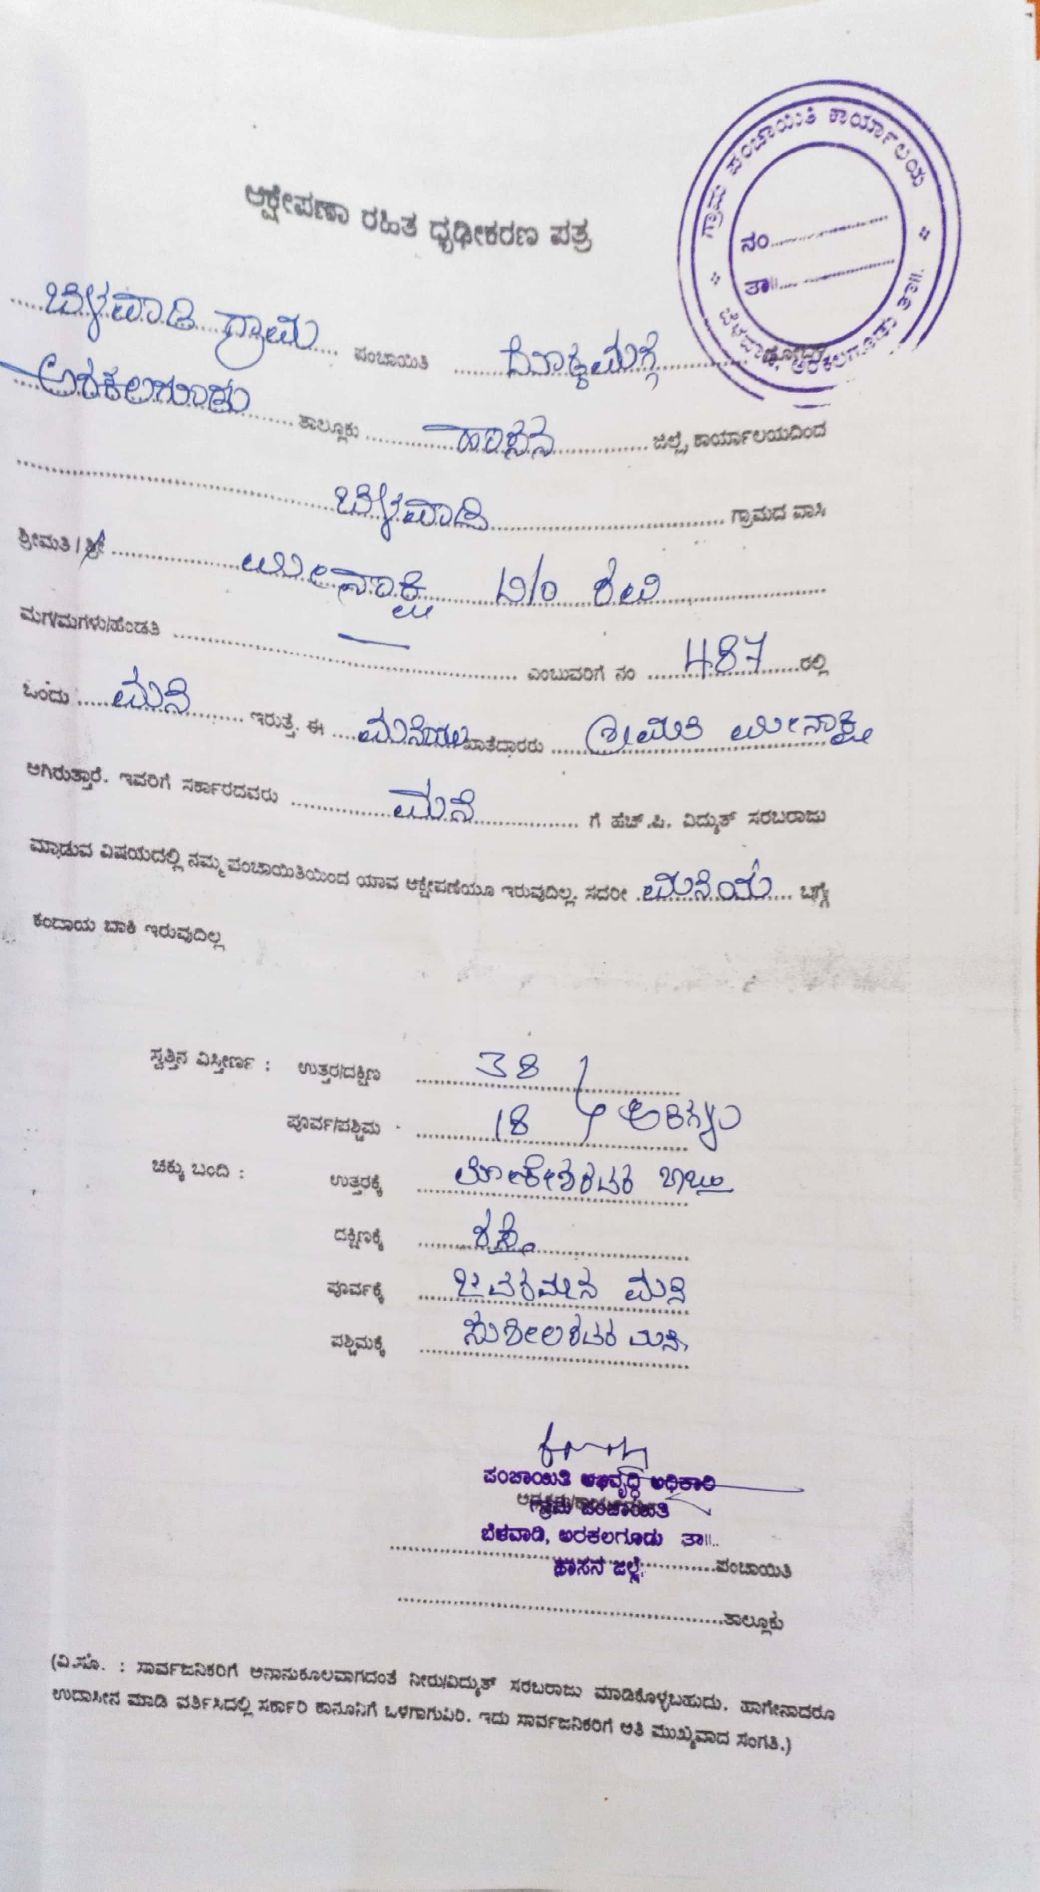 ಗ್ರಾಮ ಪಂಚಾಯಿತಿ ಕಾರ್ಯಾಲಯ
ನಂ..........
ತಾ||..........
ಬೆಳವಾಡಿ, ಅರಕಲಗೂಡು ತಾ||.
ಆಕ್ಷೇಪಣಾ ರಹಿತ ಧೃಢೀಕರಣ ಪತ್ರ
ಬೆಳವಾಡಿ ಗ್ರಾಮ ಪಂಚಾಯಿತಿ ದೊಡ್ಡಮಗ್ಗೆ ಹೋಬಳಿ
ಅರಕಲಗೂಡು ತಾಲ್ಲೂಕು ಹಾಸನ ಜಿಲ್ಲೆ, ಕಾರ್ಯಾಲಯದಿಂದ
ಬೆಳವಾಡಿ ಗ್ರಾಮದ ವಾಸಿ
ಶ್ರೀಮತಿ / ಶ್ರೀ ಮೀನಾಕ್ಷಿ W/o ರವಿ
ಮಗ/ಮಗಳು/ಹೆಂಡತಿ — ಎಂಬುವರಿಗೆ ನಂ 487 ರಲ್ಲಿ
ಒಂದು ಮನೆ ಇರುತ್ತೆ. ಈ ಮನೆಯ ಖಾತೆದಾರರು ಶ್ರೀಮತಿ ಮೀನಾಕ್ಷಿ
ಆಗಿರುತ್ತಾರೆ. ಇವರಿಗೆ ಸರ್ಕಾರದವರು ಮನೆ ಗೆ ಹೆಚ್.ಪಿ. ವಿದ್ಯುತ್ ಸರಬರಾಜು
ಮಾಡುವ ವಿಷಯದಲ್ಲಿ ನಮ್ಮ ಪಂಚಾಯಿತಿಯಿಂದ ಯಾವ ಆಕ್ಷೇಪಣೆಯೂ ಇರುವುದಿಲ್ಲ. ಸದರೀ ಮನೆಯ ಬಗ್ಗೆ
ಕಂದಾಯ ಬಾಕಿ ಇರುವುದಿಲ್ಲ
ಸ್ವತ್ತಿನ ವಿಸ್ತೀರ್ಣ : ಉತ್ತರ/ದಕ್ಷಿಣ 38
ಪೂರ್ವ/ಪಶ್ಚಿಮ 18
ಚಕ್ಕು ಬಂದಿ : ಉತ್ತರಕ್ಕೆ ಲೋಕೇಶರವರ
ದಕ್ಷಿಣಕ್ಕೆ ರಸ್ತೆ
ಪೂರ್ವಕ್ಕೆ ಮನೆ
ಪಶ್ಚಿಮಕ್ಕೆ ಸುಶೀಲರವರ ಮನೆ
ಪಂಚಾಯಿತಿ ಅಭಿವೃದ್ಧಿ ಅಧಿಕಾರಿ
ಗ್ರಾಮ ಪಂಚಾಯಿತಿ
ಬೆಳವಾಡಿ, ಅರಕಲಗೂಡು ತಾ||.
ಹಾಸನ ಜಿಲ್ಲೆ. ಪಂಚಾಯಿತಿ
ತಾಲ್ಲೂಕು
(ವಿ.ಸೂ. : ಸಾರ್ವಜನಿಕರಿಗೆ ಅನಾನುಕೂಲವಾಗದಂತೆ ನೀರು/ವಿದ್ಯುತ್ ಸರಬರಾಜು ಮಾಡಿಕೊಳ್ಳಬಹುದು. ಹಾಗೇನಾದರೂ
ಉದಾಸೀನ ಮಾಡಿ ವರ್ತಿಸಿದಲ್ಲಿ ಸರ್ಕಾರಿ ಕಾನೂನಿಗೆ ಒಳಗಾಗುವಿರಿ. ಇದು ಸಾರ್ವಜನಿಕರಿಗೆ ಅತಿ ಮುಖ್ಯವಾದ ಸಂಗತಿ.)